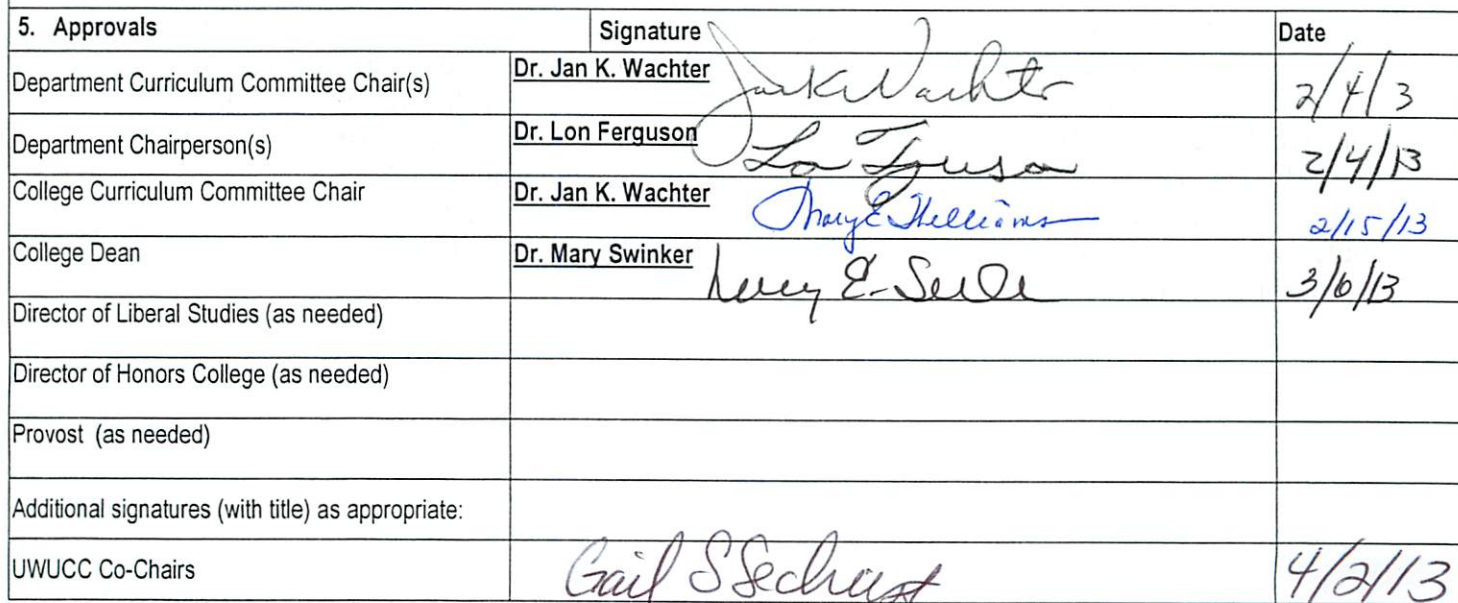 5. Approvals Signature Date
Department Curriculum Committee Chair(s) Dr. Jan K. Wachter Jan K Wachter 2/4/3
Department Chairperson(s) Dr. Lon Ferguson Lon 2/4/13
College Curriculum Committee Chair Dr. Jan K. Wachter Mary E Williams 2/15/13
College Dean Dr. Mary Swinker 3/6/13
Director of Liberal Studies (as needed)
Director of Honors College (as needed)
Provost (as needed)
Additional signatures (with title) as appropriate:
UWUCC Co-Chairs Gail S Sechrist 4/2/13